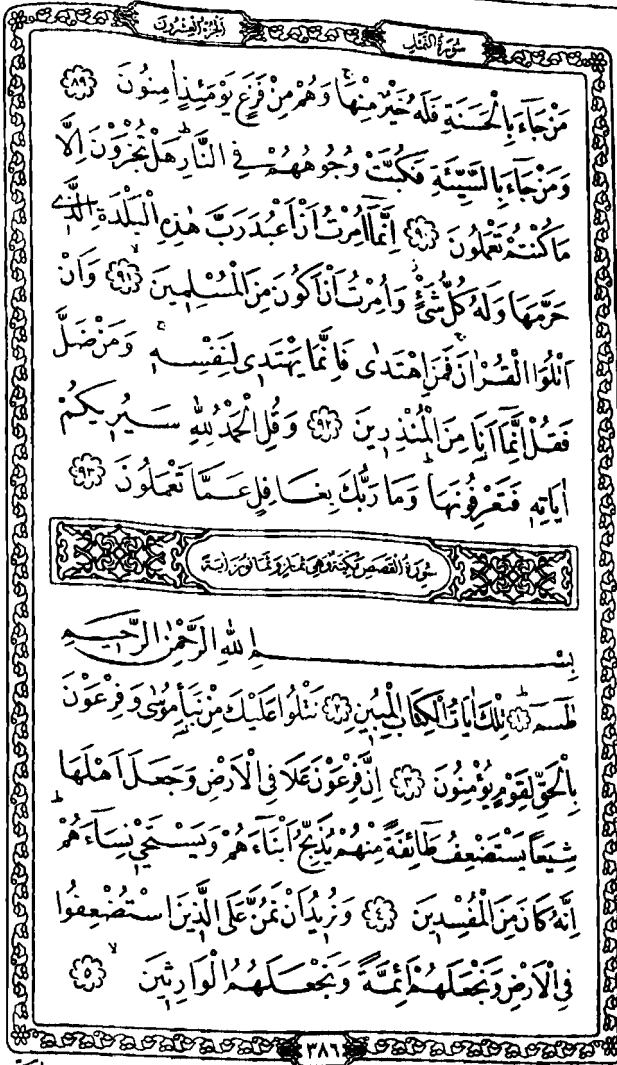 سُورَةُ النَّمْلِ
اَلْجُزْءُ الْعِشْرُونَ
مَنْ جَٓاءَ بِالْحَسَنَةِ فَلَهُ خَيْرٌ مِنْهَاۚ وَهُمْ مِنْ فَزَعٍ يَوْمَئِذٍ اٰمِنُونَ ﴿٨٩﴾
وَمَنْ جَٓاءَ بِالسَّيِّئَةِ فَكُبَّتْ وُجُوهُهُمْ فِي النَّارِۜ هَلْ تُجْزَوْنَ اِلَّا
مَا كُنْتُمْ تَعْمَلُونَ ﴿٩٠﴾ اِنَّمَٓا اُمِرْتُ اَنْ اَعْبُدَ رَبَّ هٰذِهِ الْبَلْدَةِ الَّذ۪ي
حَرَّمَهَا وَلَهُ كُلُّ شَيْءٍۘ وَاُمِرْتُ اَنْ اَكُونَ مِنَ الْمُسْلِم۪ينَۙ ﴿٩١﴾ وَاَنْ
اَتْلُوَا الْقُرْاٰنَۚ فَمَنِ اهْتَدٰى فَاِنَّمَا يَهْتَد۪ي لِنَفْسِه۪ۚ وَمَنْ ضَلَّ
فَقُلْ اِنَّمَٓا اَنَا مِنَ الْمُنْذِر۪ينَ ﴿٩٢﴾ وَقُلِ الْحَمْدُ لِلّٰهِ سَيُر۪يكُمْ
اٰيَاتِه۪ فَتَعْرِفُونَهَاۜ وَمَا رَبُّكَ بِغَافِلٍ عَمَّا تَعْمَلُونَ ﴿٩٣﴾
سُورَةُ الْقَصَصِ مَكِّيَّةٌ وَهِيَ ثَمَانٍ وَثَمَانُونَ اٰيَةً
بِسْمِ اللّٰهِ الرَّحْمٰنِ الرَّح۪يمِ
طٰسٓمٓۜ ﴿١﴾ تِلْكَ اٰيَاتُ الْكِتَابِ الْمُب۪ينِ ﴿٢﴾ نَتْلُوا عَلَيْكَ مِنْ نَبَأِ مُوسٰى وَفِرْعَوْنَ
بِالْحَقِّ لِقَوْمٍ يُؤْمِنُونَ ﴿٣﴾ اِنَّ فِرْعَوْنَ عَلَا فِي الْاَرْضِ وَجَعَلَ اَهْلَهَا
شِيَعًا يَسْتَضْعِفُ طَٓائِفَةً مِنْهُمْ يُذَبِّحُ اَبْنَٓاءَهُمْ وَيَسْتَحْي۪ نِسَٓاءَهُمْۜ
اِنَّهُ كَانَ مِنَ الْمُفْسِد۪ينَ ﴿٤﴾ وَنُر۪يدُ اَنْ نَمُنَّ عَلَى الَّذ۪ينَ اسْتُضْعِفُوا
فِي الْاَرْضِ وَنَجْعَلَهُمْ اَئِمَّةً وَنَجْعَلَهُمُ الْوَارِث۪ينَۙ ﴿٥﴾
٣٨٦